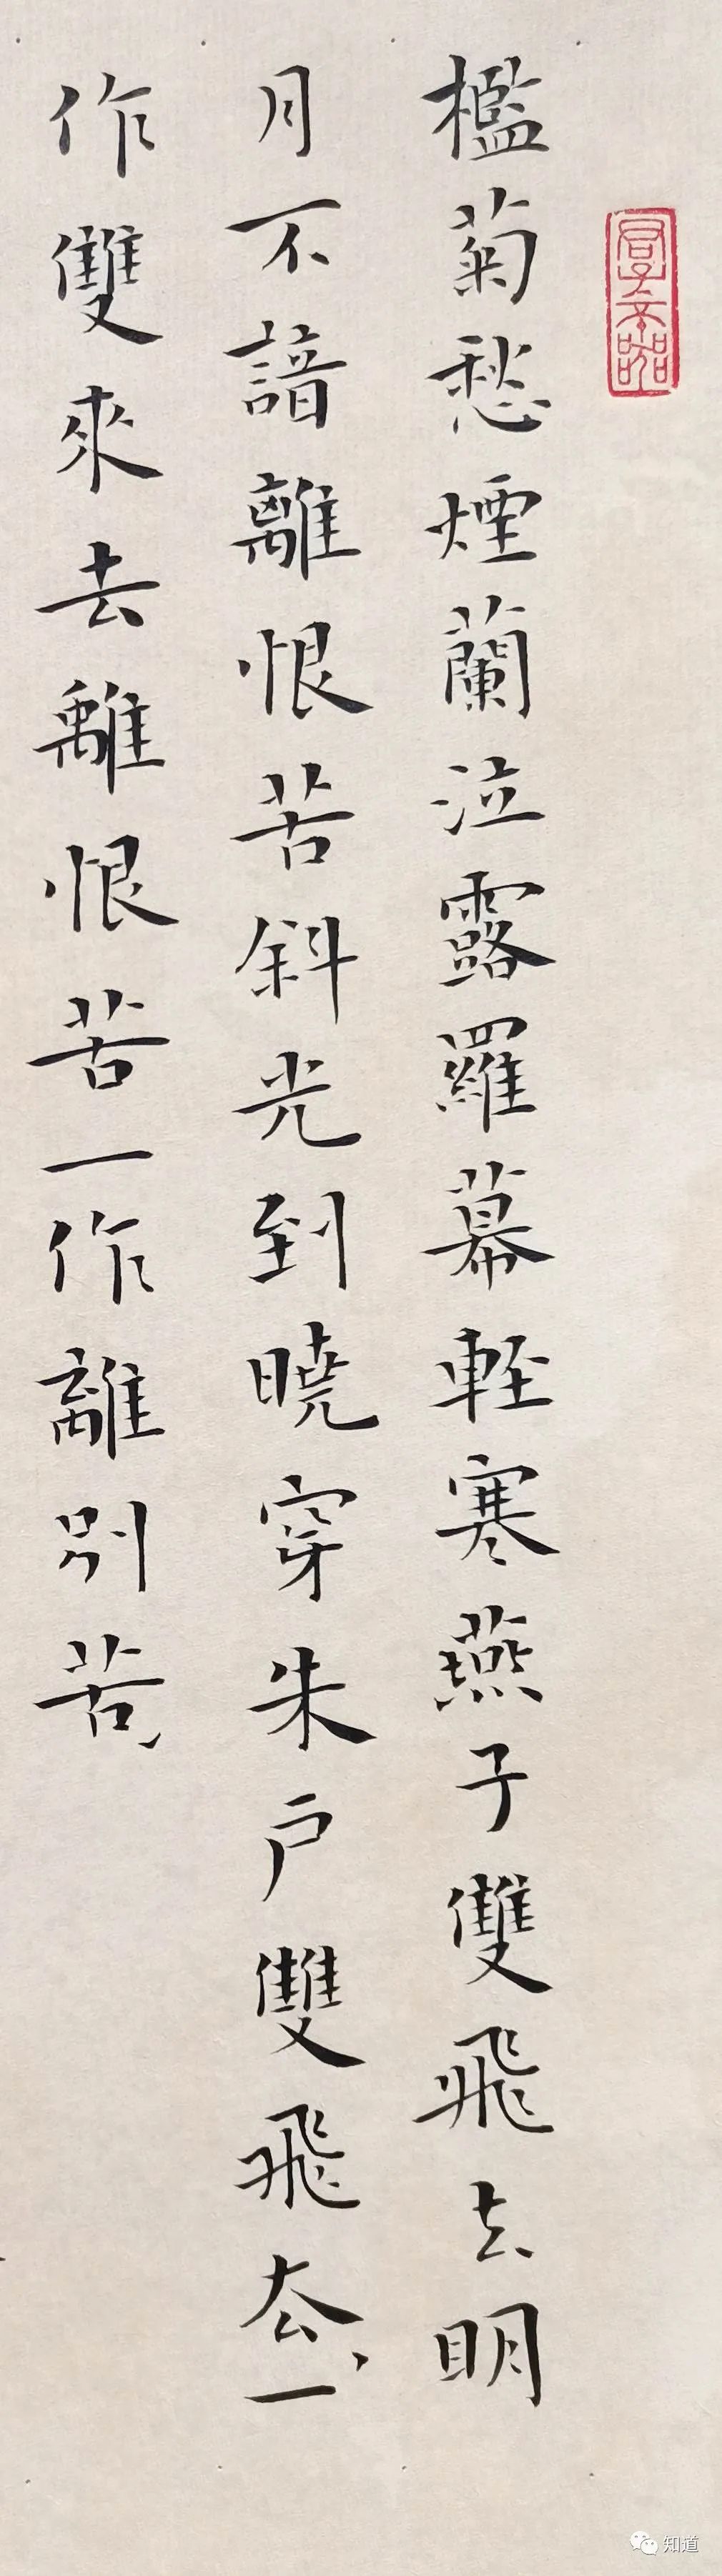 檻菊愁煙蘭泣露羅幕輕寒燕子雙飛去明
月不諳離恨苦斜光到曉穿朱户雙飛去一
作雙來去離恨苦一作離别苦
知道